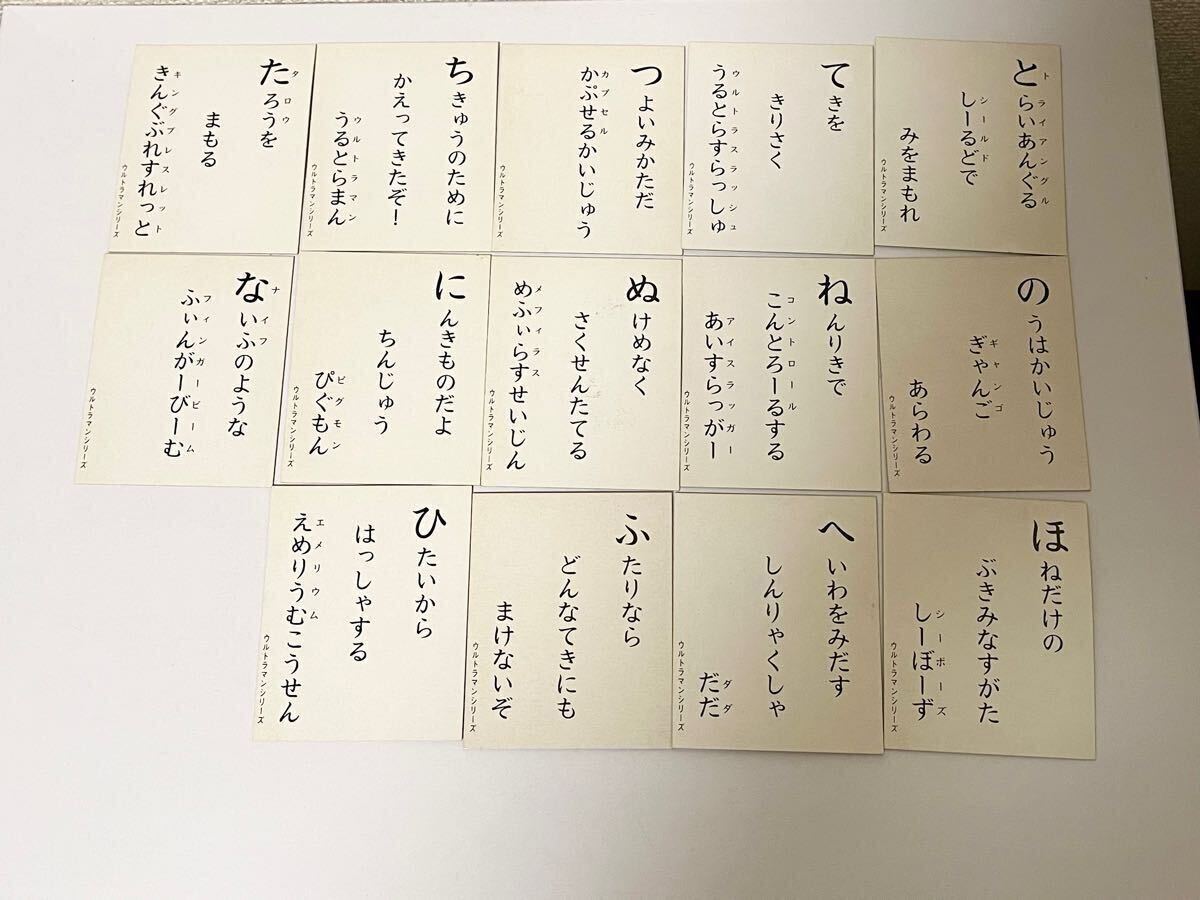 たろうを
タロウ
まもる
きんぐぶれすれっと
キングブレスレット
ウルトラマンシリーズ
ちきゅうのために
かえってきたぞ！
うるとらまん
ウルトラマン
ウルトラマンシリーズ
つよいみかただ
かぷせるかいじゅう
カプセル
ウルトラマンシリーズ
てきを
きりさく
うるとらすらっしゅ
ウルトラスラッシュ
ウルトラマンシリーズ
とらいあんぐる
トライアングル
しーるどで
シールド
みをまもれ
ウルトラマンシリーズ
ないふのような
ナイフ
ふぃんがーびーむ
フィンガービーム
ウルトラマンシリーズ
にんきものだよ
ちんじゅう
ぴぐもん
ピグモン
ウルトラマンシリーズ
ぬけめなく
さくせんたてる
めふぃらすせいじん
メフィラス
ウルトラマンシリーズ
ねんりきで
こんとろーるする
コントロール
あいすらっがー
アイスラッガー
ウルトラマンシリーズ
のうはかいじゅう
ぎゃんご
ギャンゴ
あらわる
ウルトラマンシリーズ
ひたいから
はっしゃする
えめりうむこうせん
エメリウム
ウルトラマンシリーズ
ふたりなら
どんなてきにも
まけないぞ
ウルトラマンシリーズ
へいわをみだす
しんりゃくしゃ
だだ
ダダ
ウルトラマンシリーズ
ほねだけの
ぶきみなすがた
しーぼーず
シーボーズ
ウルトラマンシリーズ